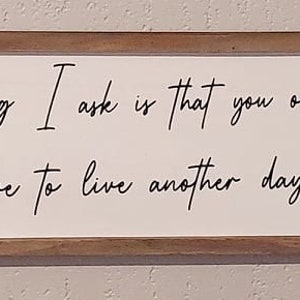 g I ask is that you o
e to live another day